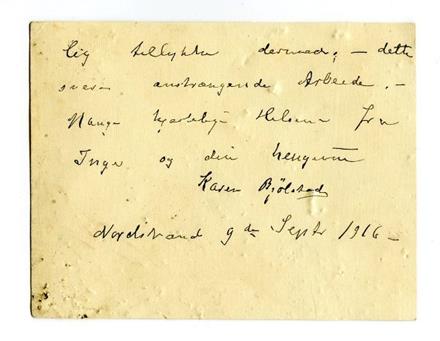 dig tillykke dermed; – dette
svære anstrængende Arbeide. –
Mange hjærtelige Hilsener fra
Inga og din hengivne
Karen Bjölstad
Nordstrand 9de Septr 1916 –